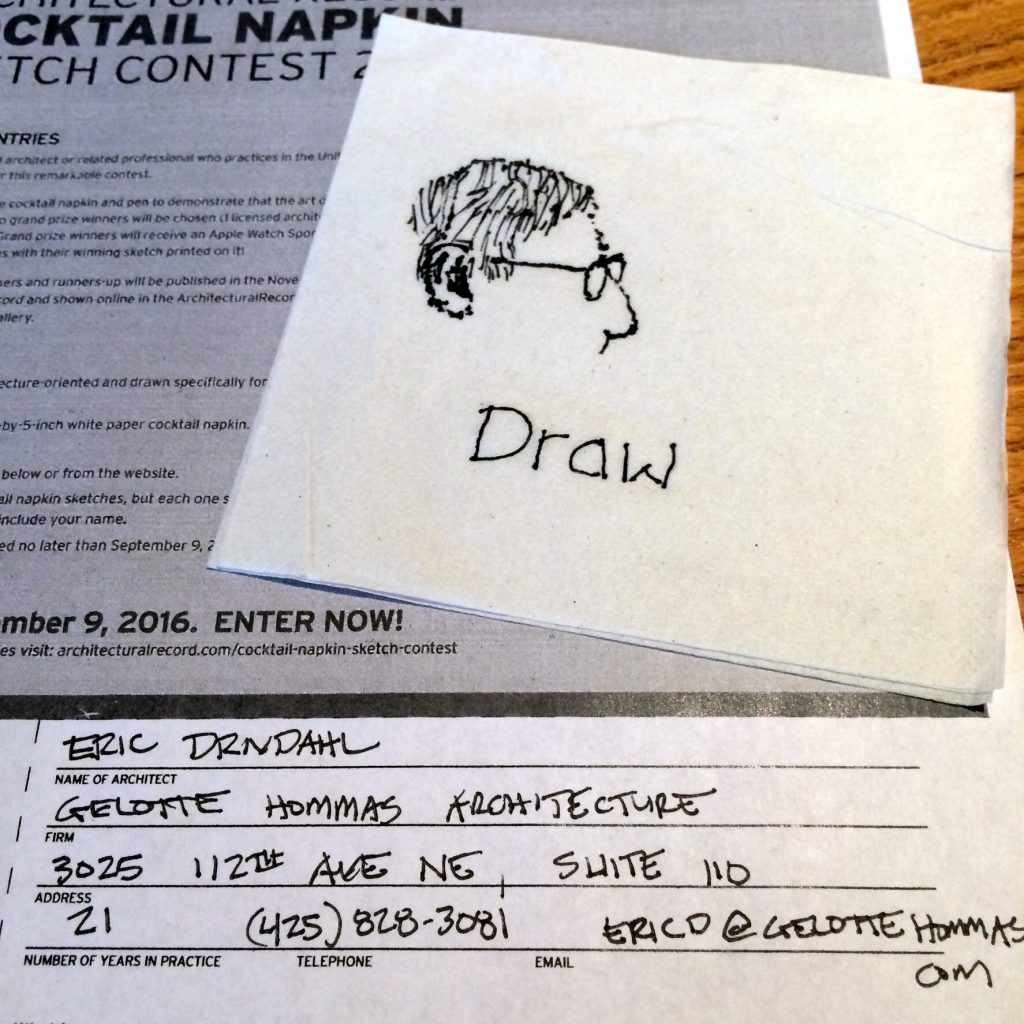 CHITECTURAL RECORD
OCKTAIL NAPKIN
ETCH CONTEST 2
NTRIES
architect or related professional who practices in the Uni
r this remarkable contest.
e cocktail napkin and pen to demonstrate that the art o
o grand prize winners will be chosen (1 licensed archite
Grand prize winners will receive an Apple Watch Spor
s with their winning sketch printed on it!
ners and runners-up will be published in the Nove
cord and shown online in the ArchitecturalRecor
allery.
ecture-oriented and drawn specifically for
-by-5-inch white paper cocktail napkin.
below or from the website.
ail napkin sketches, but each one s
include your name.
ed no later than September 9, 2
ember 9, 2016. ENTER NOW!
es visit: architecturalrecord.com/cocktail-napkin-sketch-contest
Draw
ERIC DRNDAHL
NAME OF ARCHITECT
GELOTTE HOMMAS ARCHITECTURE
FIRM
3025 112TH AVE NE SUITE 110
ADDRESS
21 (425) 828-3081 ERICD@GELOTTEHOMMAS
COM
NUMBER OF YEARS IN PRACTICE TELEPHONE EMAIL